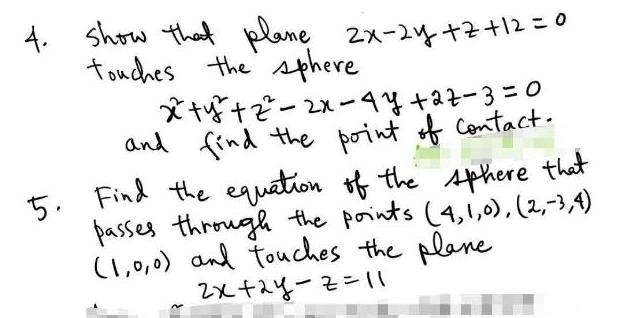 4. Show that plane 2x-2y+z+12=0
touches the sphere
x²+y²+z²-2x-4y+2z-3=0
and find the point of contact.
5. Find the equation of the sphere that
passes through the points (4,1,0), (2,-3,4)
(1,0,0) and touches the plane
2x+2y-z=11